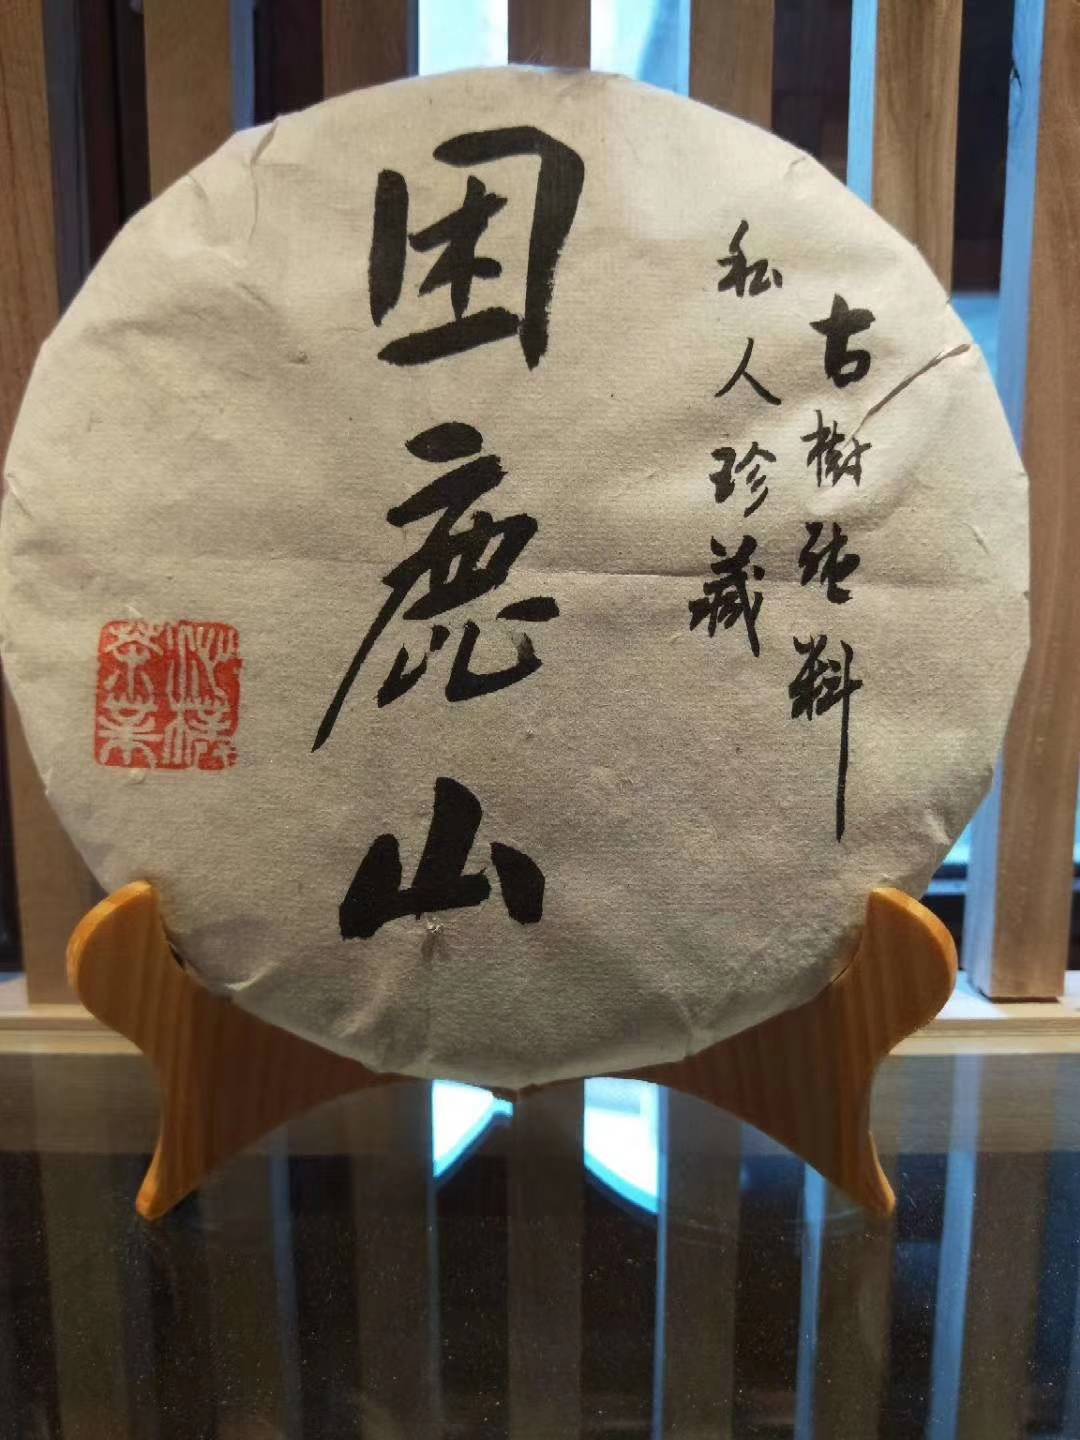 古樹纯料
私人珍藏
困鹿山
茶業